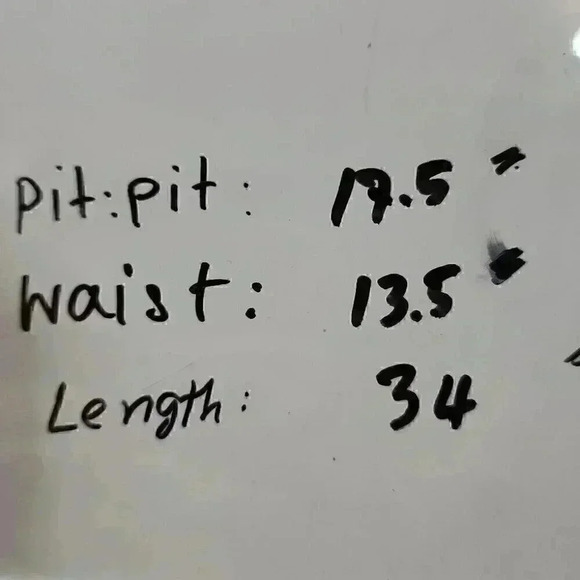 Pit:pit: 17.5"
Waist: 13.5"
Length: 34